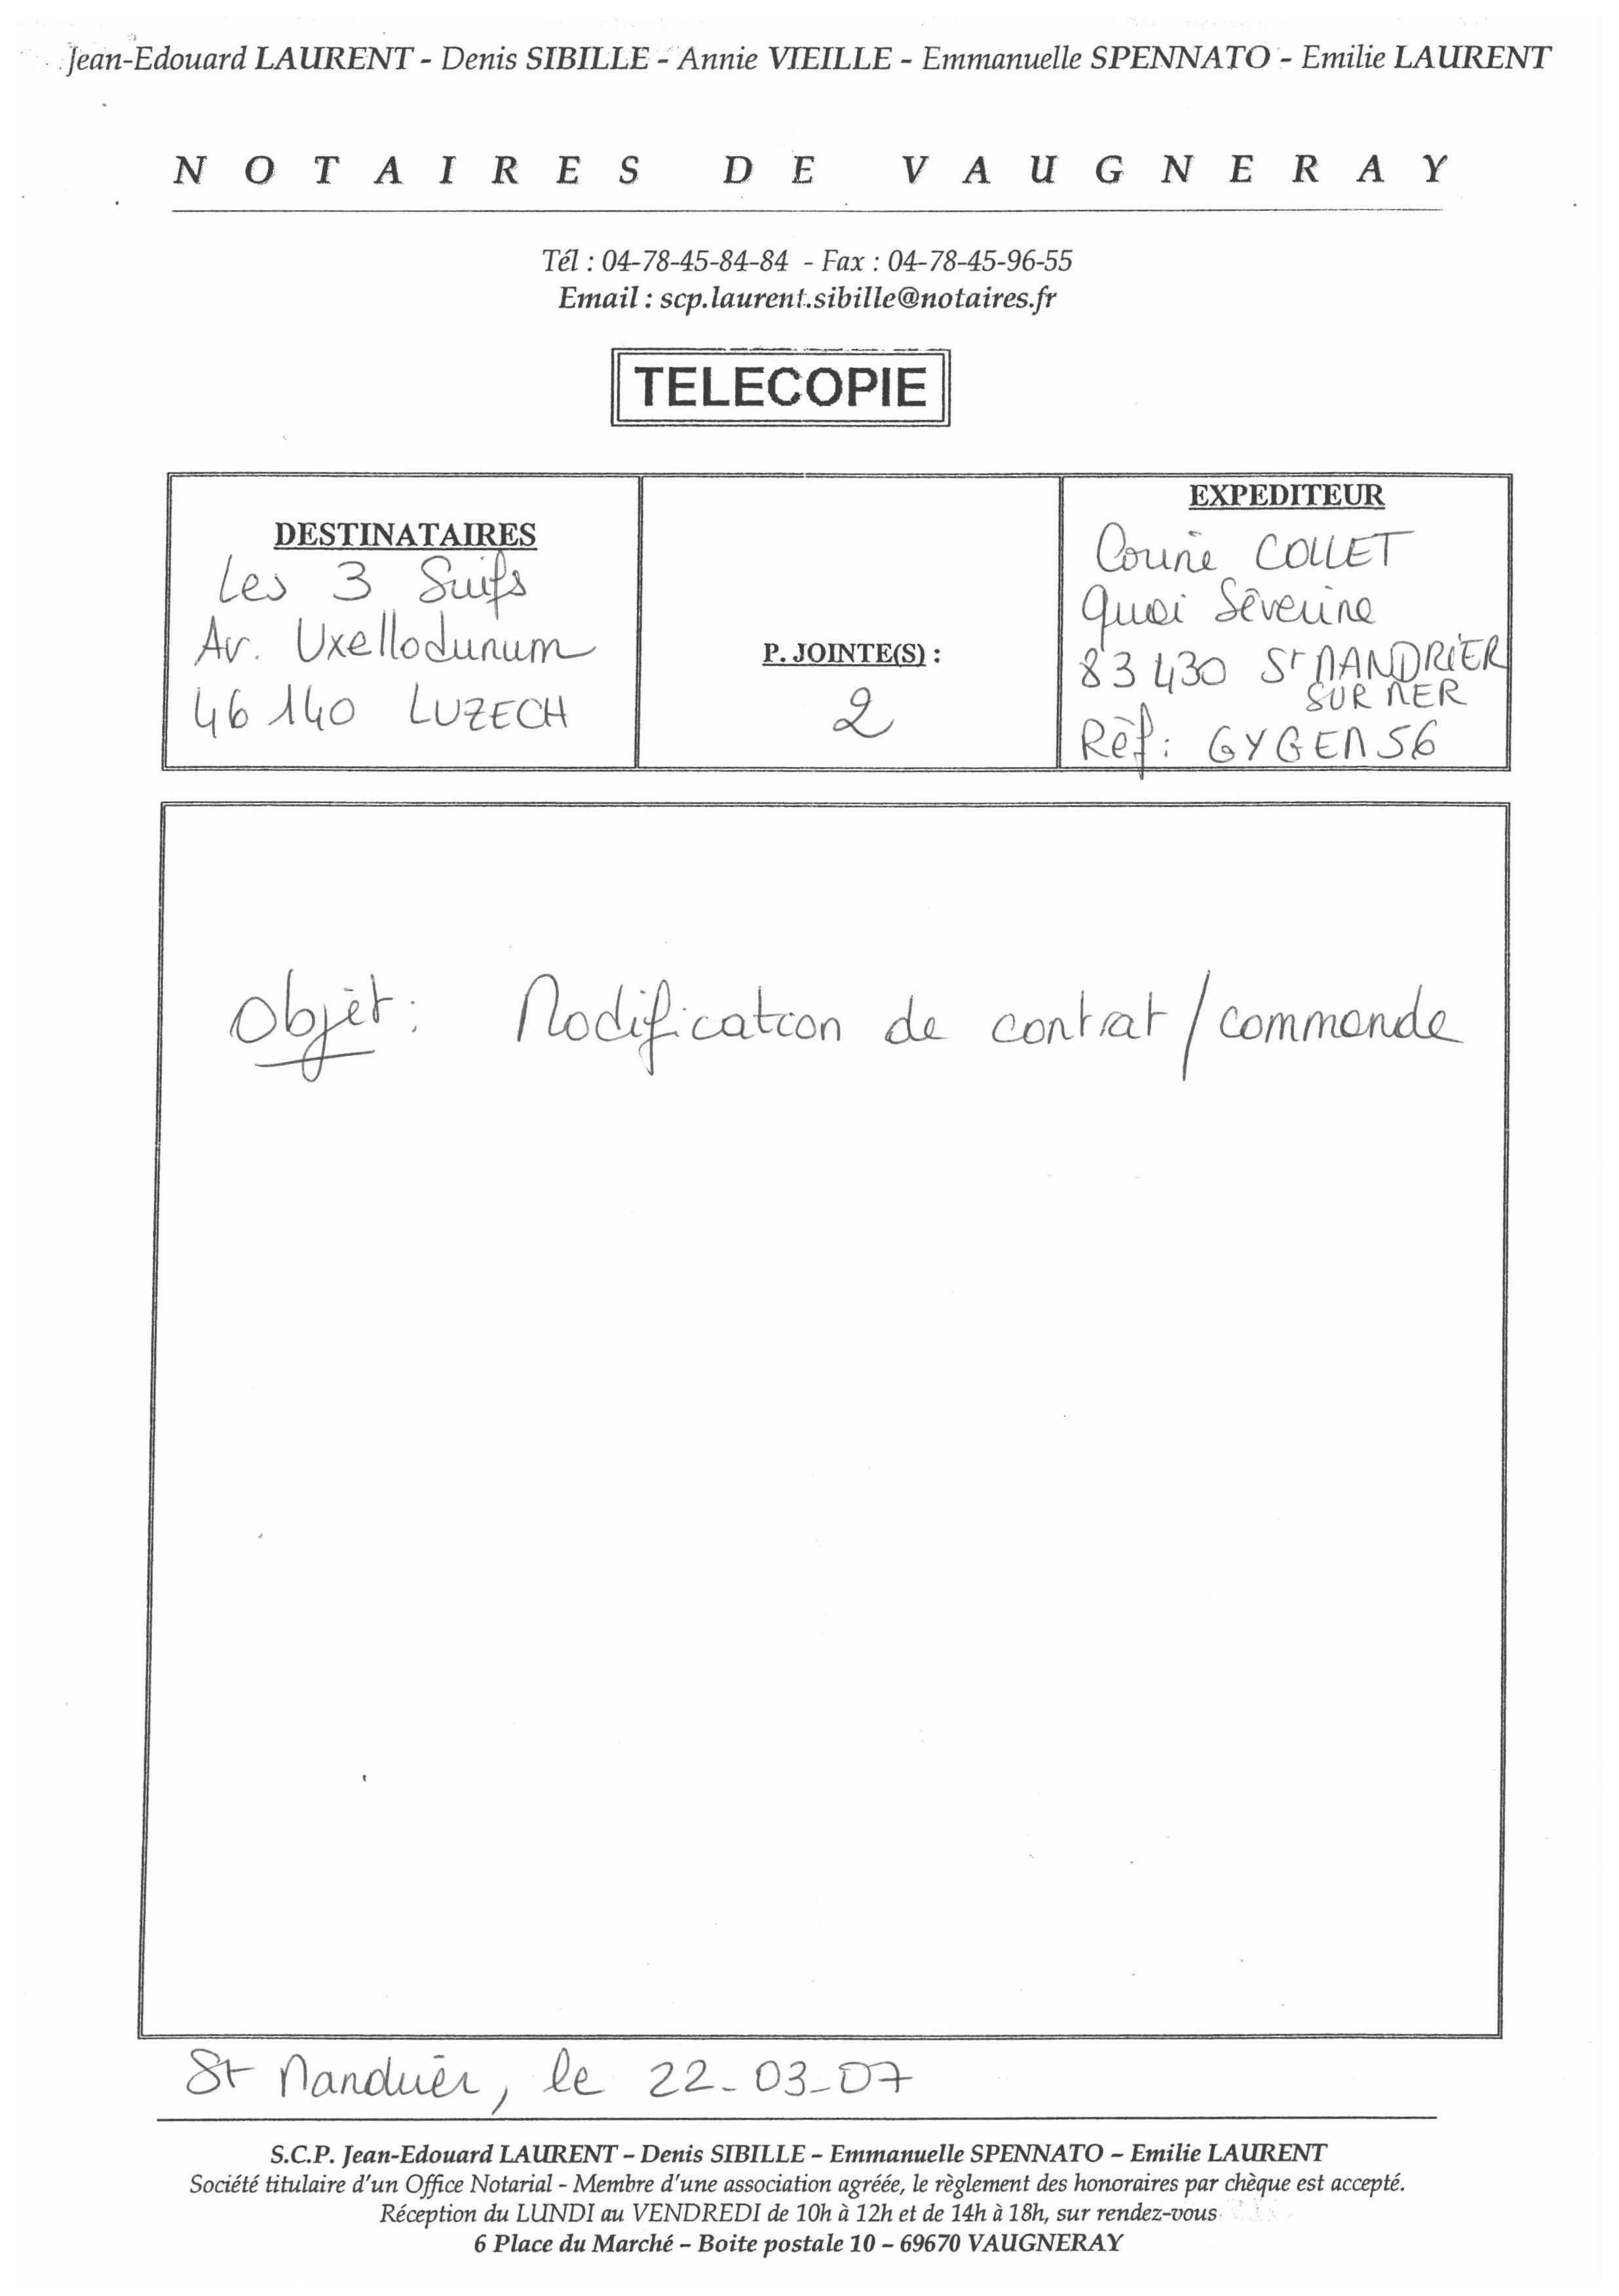 Jean-Edouard LAURENT - Denis SIBILLE - Annie VIEILLE - Emmanuelle SPENNATO - Emilie LAURENT
NOTAIRES DE VAUGNERAY
Tél : 04-78-45-84-84 - Fax : 04-78-45-96-55
Email : scp.laurent.sibille@notaires.fr
TELECOPIE
DESTINATAIRES
Les 3 Suifs
Av. Uxellodunum
46 140 LUZECH
P. JOINTE(S) :
2
EXPEDITEUR
Corine COLLET
Quai Séverine
83 430 St MANDRIER
SUR MER
Réf : GYGEM56
Objet : Modification de contrat / commande
St Mandrier, le 22-03-07
S.C.P. Jean-Edouard LAURENT – Denis SIBILLE – Emmanuelle SPENNATO – Emilie LAURENT
Société titulaire d'un Office Notarial - Membre d'une association agréée, le règlement des honoraires par chèque est accepté.
Réception du LUNDI au VENDREDI de 10h à 12h et de 14h à 18h, sur rendez-vous
6 Place du Marché – Boite postale 10 – 69670 VAUGNERAY